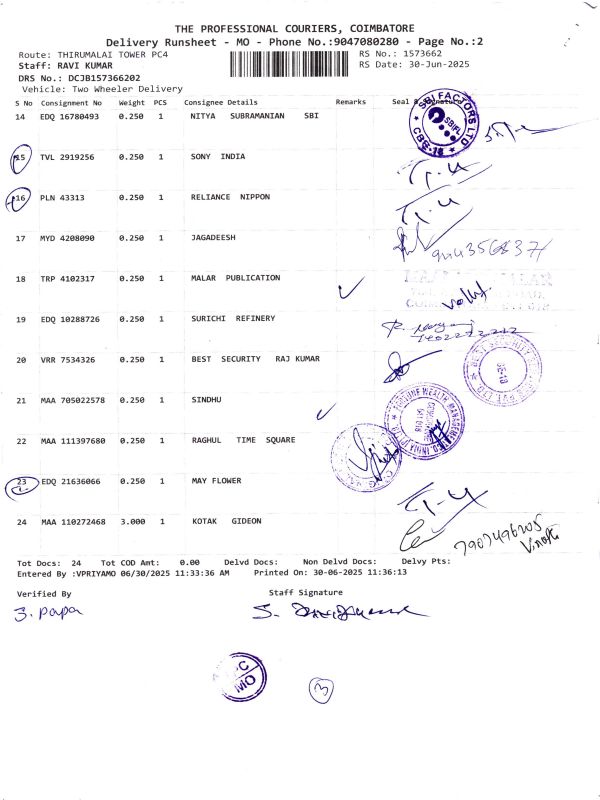 THE PROFESSIONAL COURIERS, COIMBATORE
Delivery Runsheet - MO - Phone No.:9047080280 - Page No.:2
Route: THIRUMALAI TOWER PC4 RS No.: 1573662
Staff: RAVI KUMAR RS Date: 30-Jun-2025
DRS No.: DCJB157366202
Vehicle: Two Wheeler Delivery
S No Consignment No Weight PCS Consignee Details Remarks Seal & Signature
14 EDQ 16780493 0.250 1 NITYA SUBRAMANIAN SBI
SBI FACTORS LTD
SBIFL
CBE-18
15 TVL 2919256 0.250 1 SONY INDIA
16 PLN 43313 0.250 1 RELIANCE NIPPON
17 MYD 4208090 0.250 1 JAGADEESH
18 TRP 4102317 0.250 1 MALAR PUBLICATION
19 EDQ 10288726 0.250 1 SURICHI REFINERY
20 VRR 7534326 0.250 1 BEST SECURITY RAJ KUMAR
21 MAA 705022578 0.250 1 SINDHU
22 MAA 111397680 0.250 1 RAGHUL TIME SQUARE
23 EDQ 21636066 0.250 1 MAY FLOWER
24 MAA 110272468 3.000 1 KOTAK GIDEON
Tot Docs: 24 Tot COD Amt: 0.00 Delvd Docs: Non Delvd Docs: Delvy Pts:
Entered By :VPRIYAMO 06/30/2025 11:33:36 AM Printed On: 30-06-2025 11:36:13
Verified By Staff Signature
S. papa
MO
3